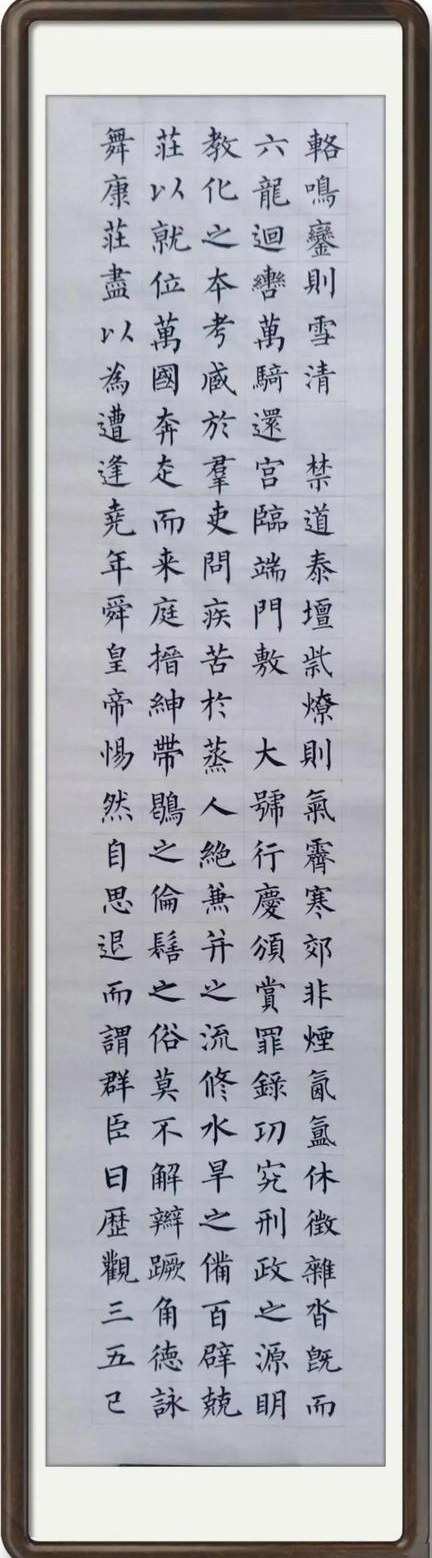 輅鳴鑾則雪清 禁道泰壇祡燎則氣霽寒郊非煙氤氳休徵雜沓既而
六龍迴轡萬騎還宮臨端門敷 大號行慶頒賞罪錄功究刑政之源明
教化之本考威於羣吏問疾苦於蒸人絕兼并之流修水旱之備百辟兢
莊以就位萬國奔走而来庭搢紳帶鶡之倫髽之俗莫不解辮蹶角德詠
舞康莊盡以為遭逢堯年舜皇帝惕然自思退而謂群臣曰歷觀三五已